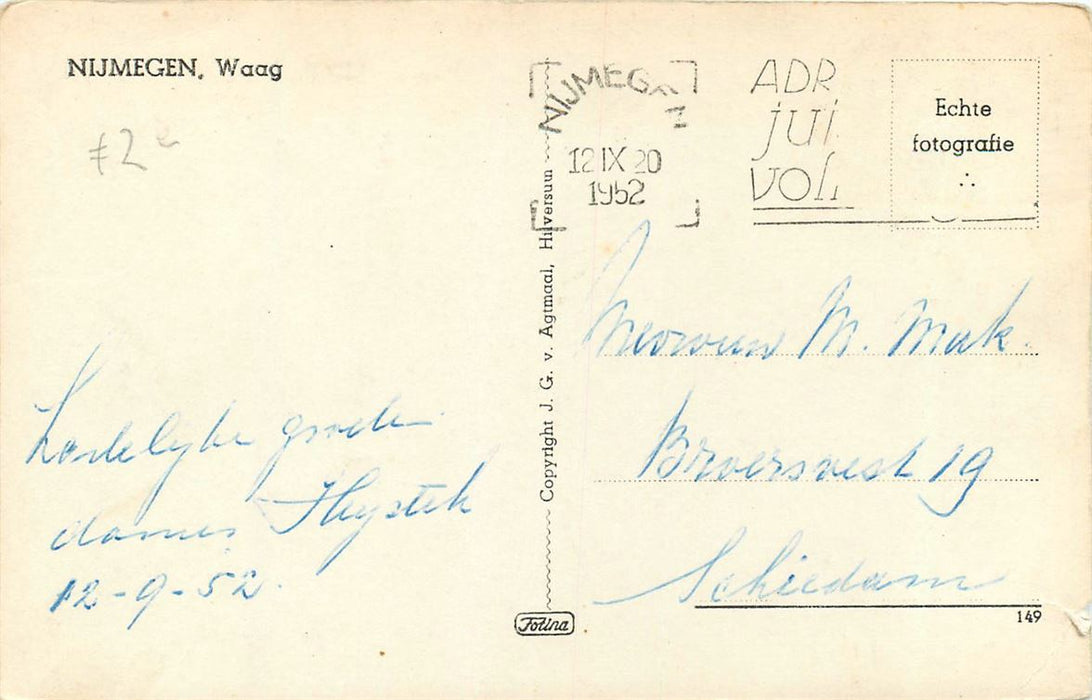 NIJMEGEN, Waag
12 IX 20
1952
ADR
jui
VOL
Echte
fotografie
Mevrouw M. Mak.
Broersvest 19
Schiedam
Hartelijke groeten
dames
12-9-52.
Copyright J. G. v. Agtmaal, Hilversum
Fotina
149